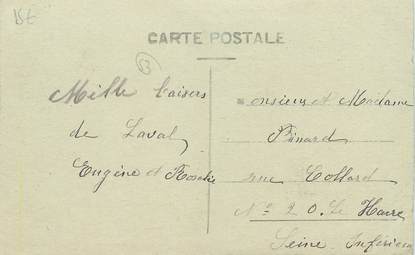 15€
CARTE POSTALE
Mille baisers
de Laval
Eugène et Rosalie
Monsieur et Madame
Binard
rue Collard
N° 20. Le Havre
Seine Inférieure